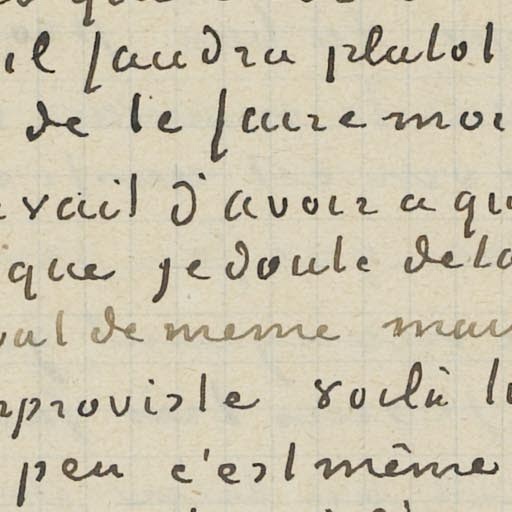 il faudra plutot
de le faire moi
vail d'avoir a qu
que je doute de la
val de meme mau
mproviste voilà l
peu c'est même